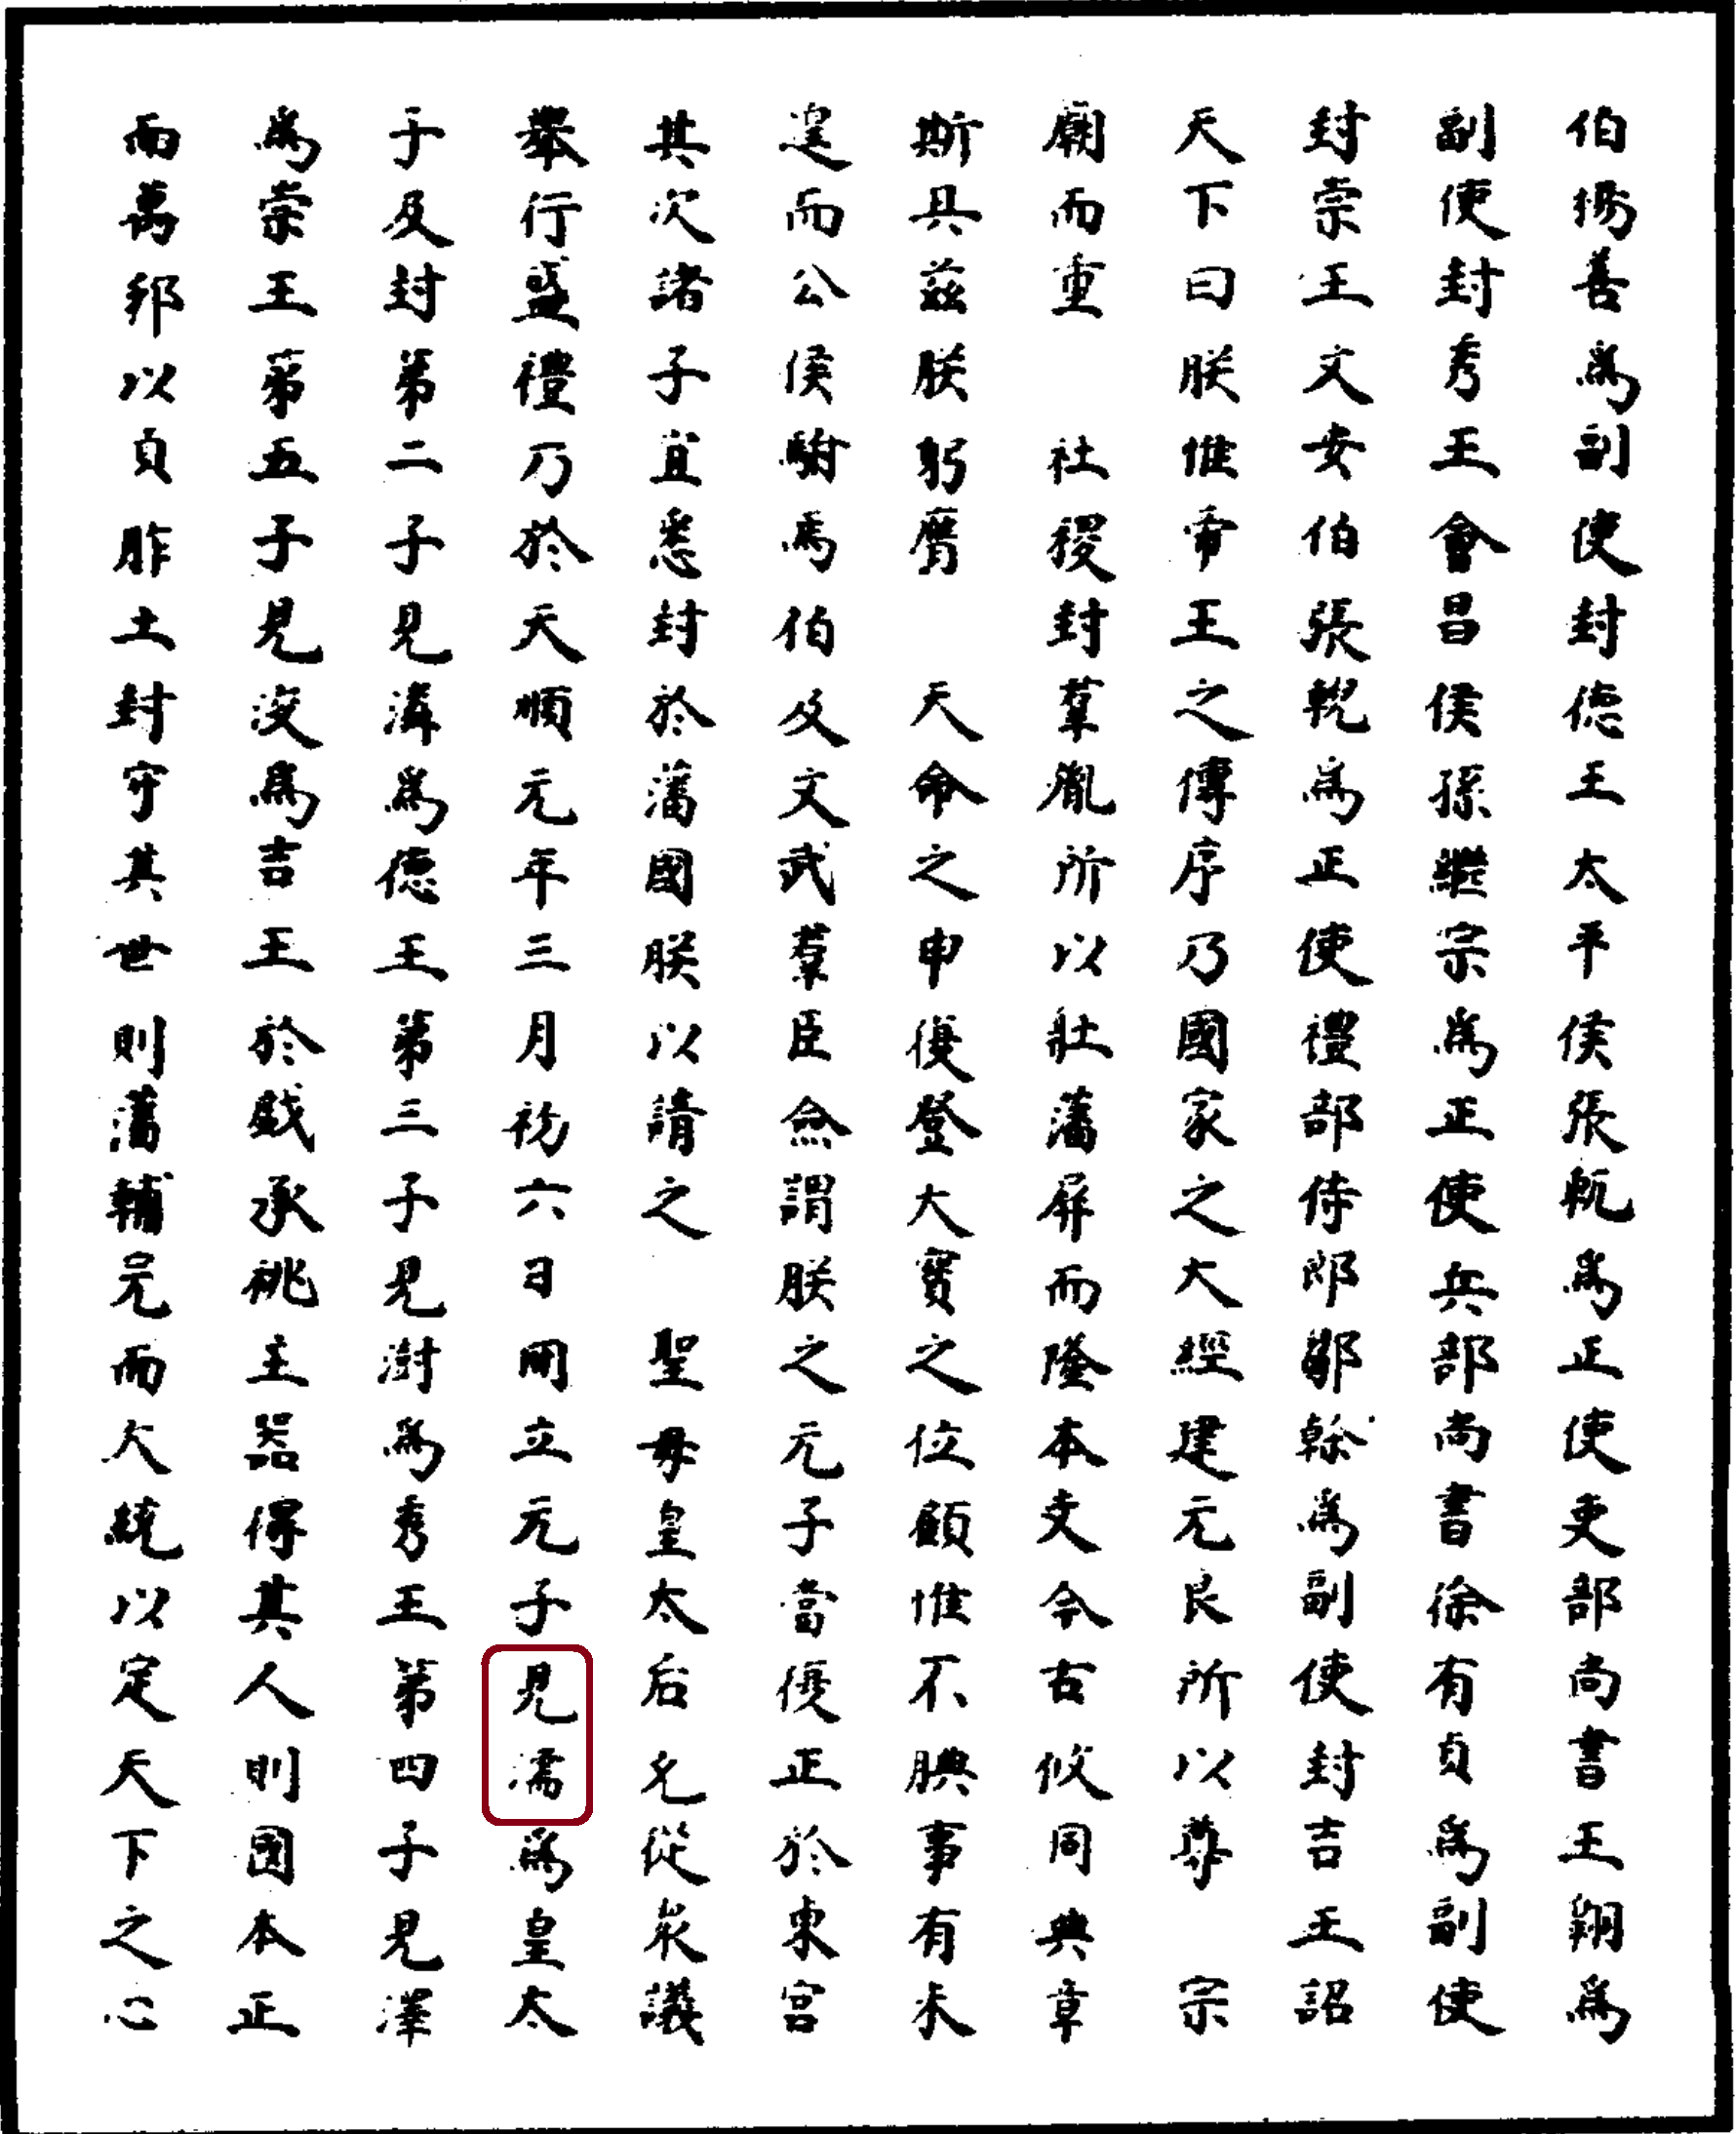 伯楊善爲副使封德王太平侯張軏爲正使吏部尚書王翔爲
副使封秀王會昌侯孫繼宗爲正使兵部尚書徐有貞爲副使
封崇王文安伯張輗爲正使禮部侍郎鄒榦爲副使封吉王詔
天下曰朕惟帝王之傳序乃國家之大經建元良所以尊 宗
廟而重 社稷封羣胤所以壯藩屏而隆本支今古攸同典章
斯具茲朕躬膺 天命之申復登大寶之位顧惟不腆事有未
遑而公侯駙馬伯及文武羣臣僉謂朕之元子當復正於東宮
其次諸子宜悉封於藩國朕以請之 聖母皇太后允從衆議
舉行盛禮乃於天順元年三月初六日冊立元子見濡爲皇太
子及封第二子見潾爲德王第三子見澍爲秀王第四子見澤
爲崇王第五子見浚爲吉王於戲承祧主器得其人則國本正
而萬邦以貞胙土封守其世則藩輔完而大統以定天下之心